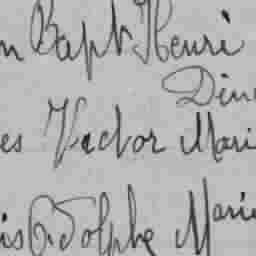 n Bapt Henri
Din
es Victor Mari
is Adolphe Marie